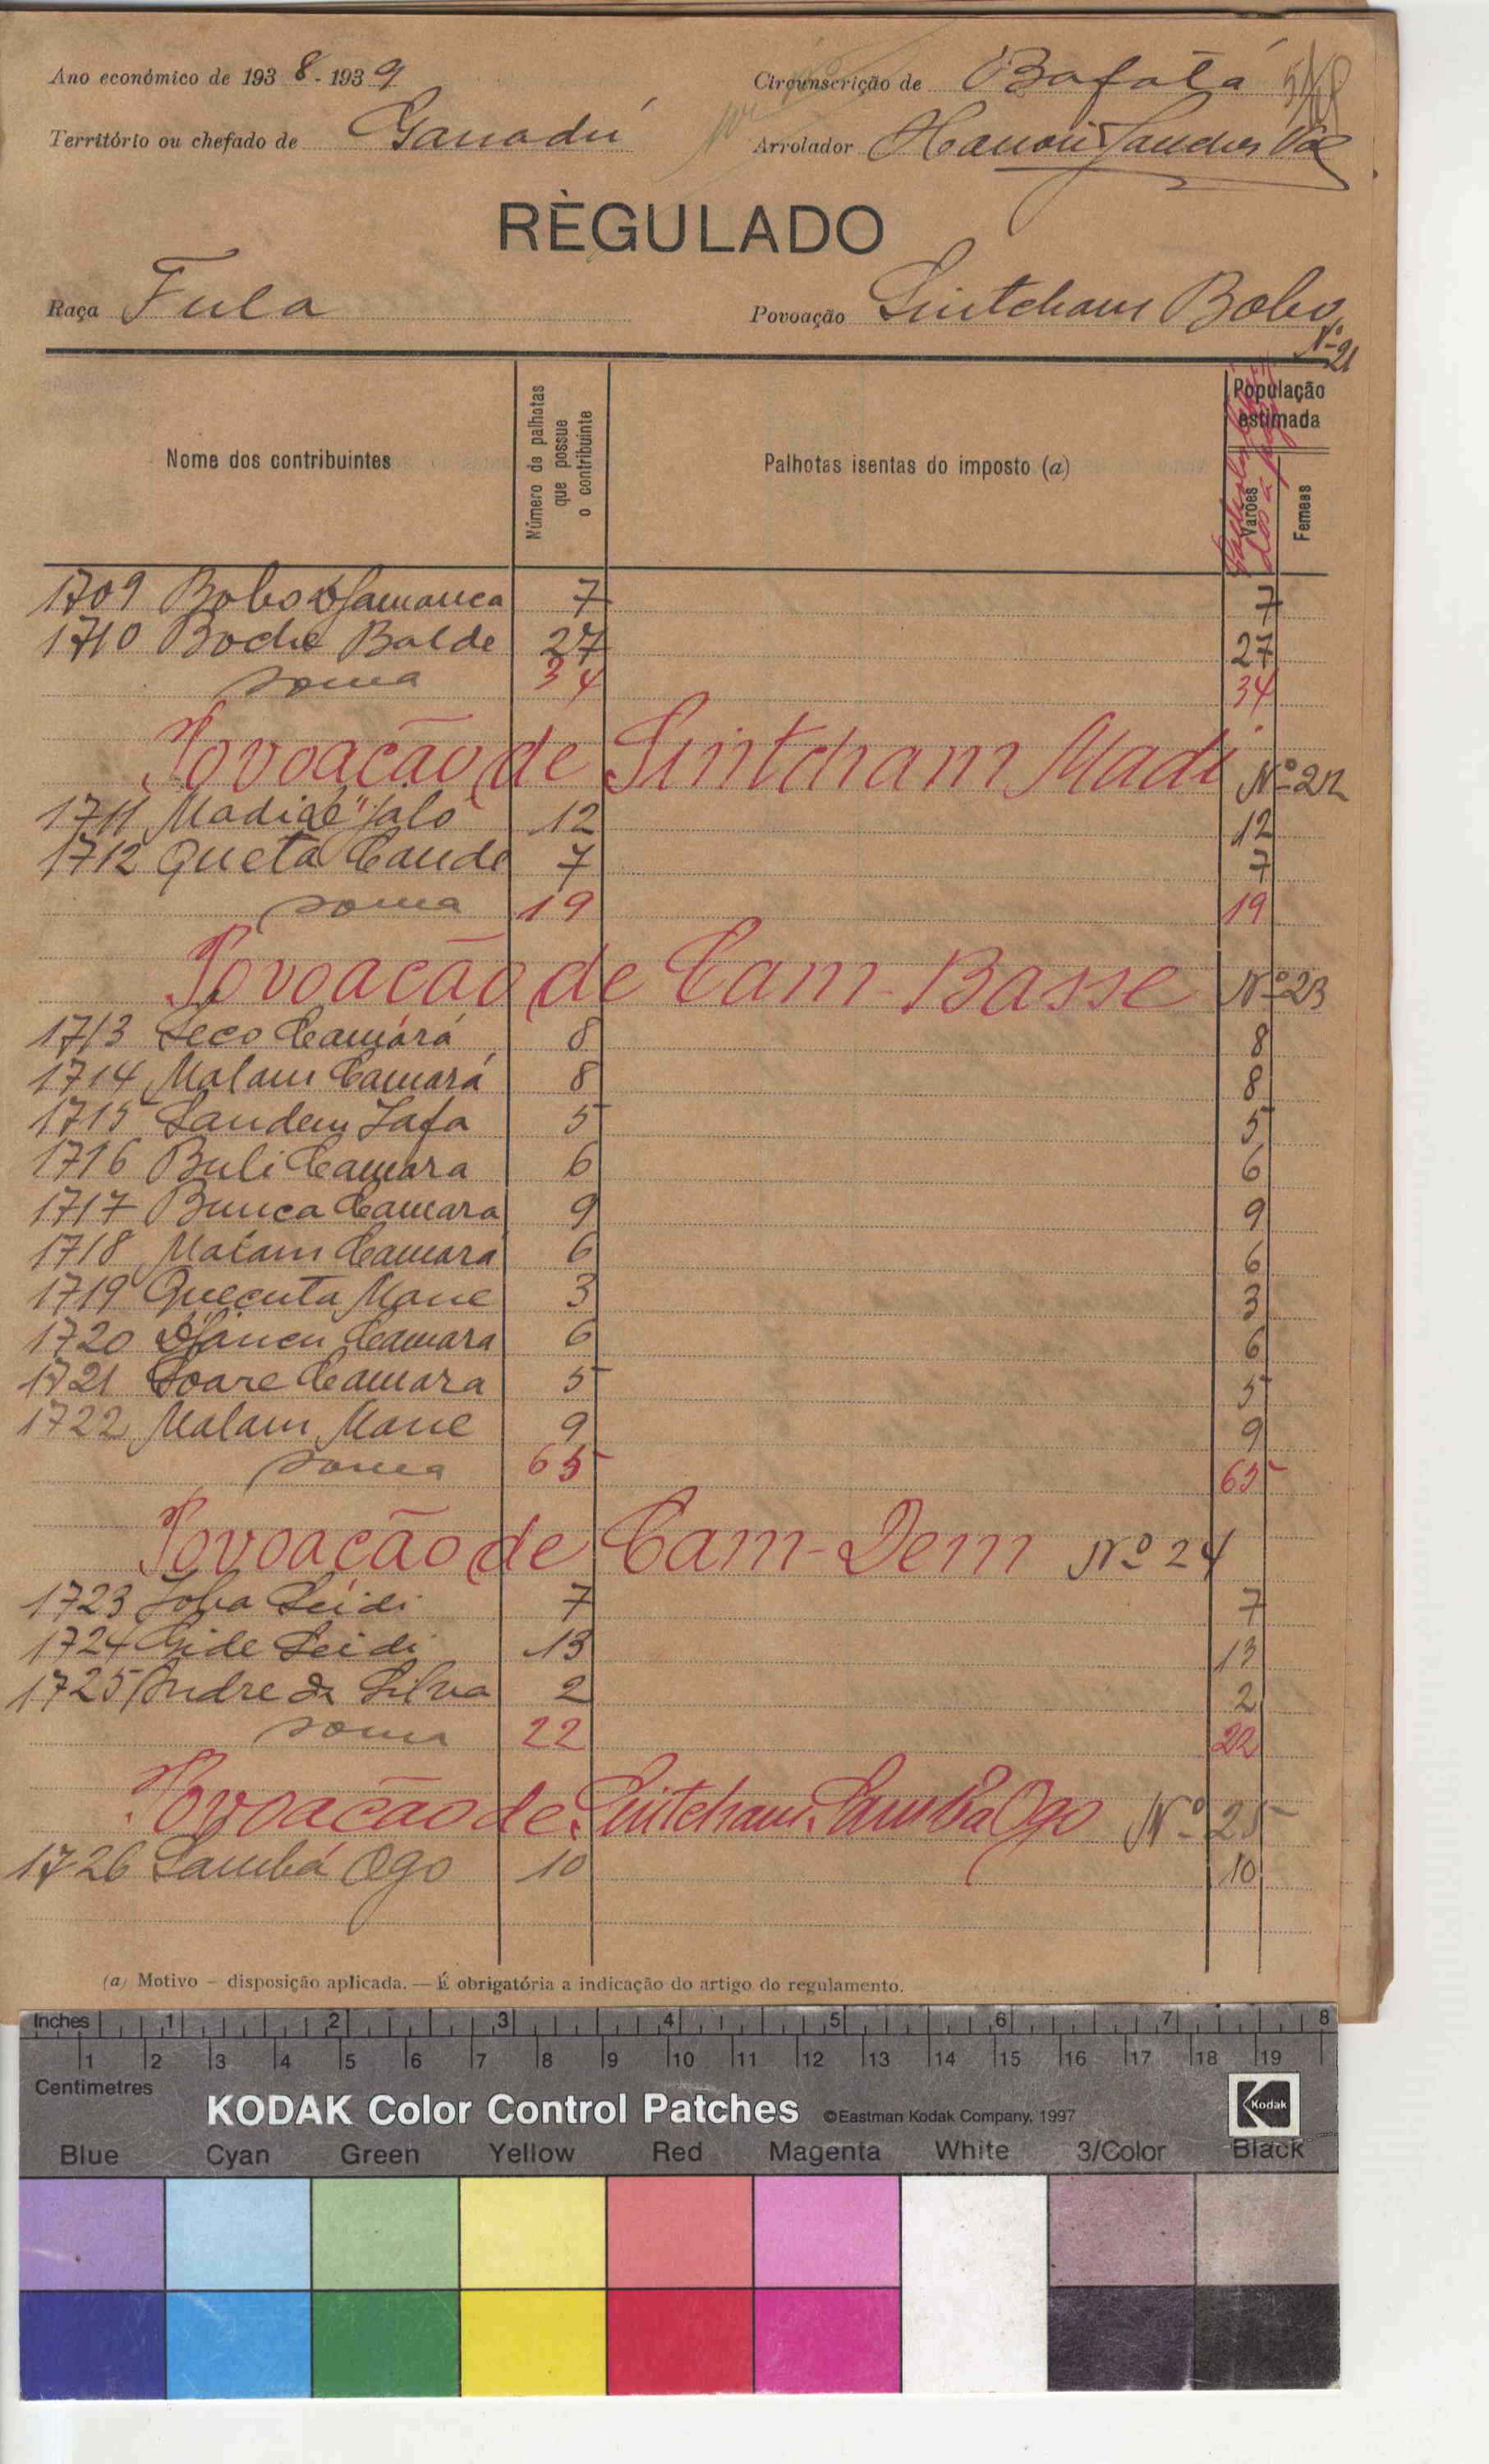 Ano económico de 193 8 - 193 9
Circunscrição de Bafatá
Território ou chefado de Ganadú
Arrolador
RÈGULADO
Raça Fula
Povoação Sintcham Bobo
Nº 21
Nome dos contribuintes
Número de palhotas que possue o contribuinte
Palhotas isentas do imposto (a)
População estimada
Varões
Femeas
1709 Bobo Djamanca 7 7
1710 Boche Balde 27 27
soma 34 34
Povoação de Sintcham Madi Nº 22
1711 Madide Jaló 12 12
1712 Queta Cande 7 7
soma 19 19
Povoação de Cam-Basse Nº 23
1713 Seco Camará 8 8
1714 Malam Camará 8 8
1715 Sandem Jafa 5 5
1716 Buli Camara 6 6
1717 Bunca Camara 9 9
1718 Malam Camara 6 6
1719 Quecuta Mane 3 3
1720 Camara 6 6
1721 Soare Camara 5 5
1722 Malam Mane 9 9
soma 65 65
Povoação de Cam-Dem Nº 24
1723 Joba Seidi 7 7
1724 Gide Seidi 13 13
1725 Andre da Silva 2 2
soma 22 22
Povoação de Sintcham Samba Ogo Nº 25
1726 Sambá Ogo 10 10
(a) Motivo – disposição aplicada. — É obrigatória a indicação do artigo do regulamento.
Inches 1 2 3 4 5 6 7 8
1 2 3 4 5 6 7 8 9 10 11 12 13 14 15 16 17 18 19
Centimetres
KODAK Color Control Patches ©Eastman Kodak Company, 1997 Kodak
Blue Cyan Green Yellow Red Magenta White 3/Color Black